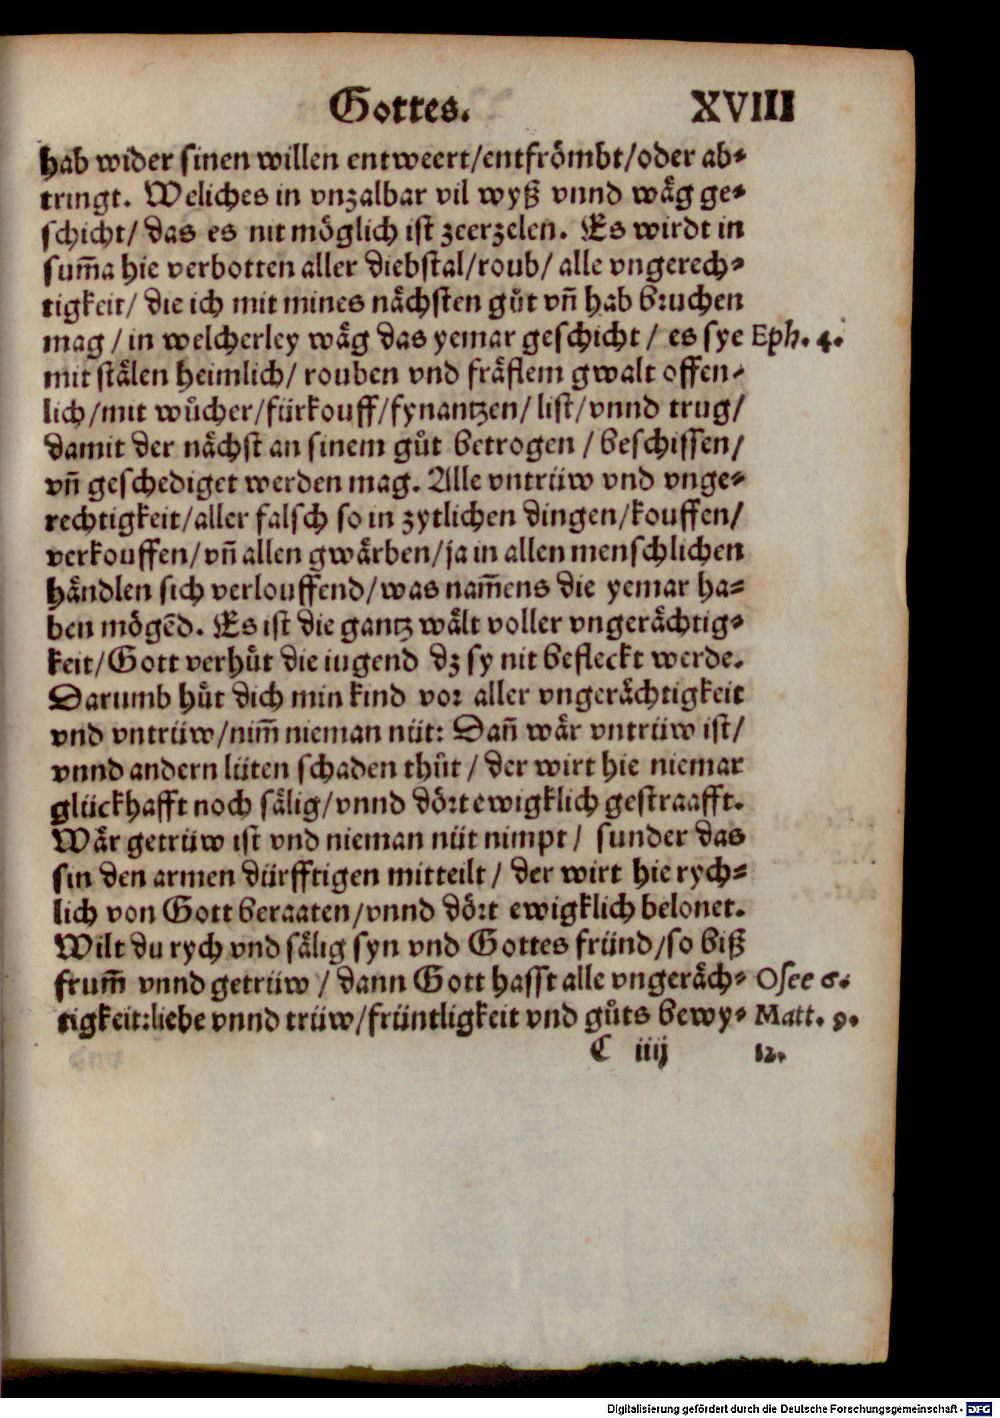 Gottes. XVIII
hab wider sinen willen entweert/entfrömbt/oder ab⸗
tringt. Weliches in vnzalbar vil wyß vnnd wäg ge⸗
schicht/ das es nit möglich ist zeerzelen. Es wirdt in
sum̃a hie verbotten aller diebstal/roub/ alle vngerech⸗
tigkeit/ die ich mit mines nächsten gůt vñ hab bruchen
mag / in welcherley wäg das yemar geschicht / es sye Eph. 4.
mit stälen heimlich/ rouben vnd fräflem gwalt offen⸗
lich/mit wůcher/fürkouff/fynantzen/ list/vnnd trug/
damit der nächst an sinem gůt betrogen / beschissen/
vñ geschediget werden mag. Alle vntrüw vnd vnge⸗
rechtigkeit/aller falsch so in zytlichen dingen/kouffen/
verkouffen/vñ allen gwärben/ja in allen menschlichen
händlen sich verlouffend/was nam̃ens die yemar ha⸗
ben mögẽd. Es ist die gantz wält voller vngerächtig⸗
keit/Gott verhůt die iugend dz sy nit befleckt werde.
Darumb hůt dich min kind vor aller vngerächtigkeit
vnd vntrüw/nim̃ nieman nüt: Dañ wär vntrüw ist/
vnnd andern lüten schaden thůt / der wirt hie niemar
glückhafft noch sälig/vnnd dört ewigklich gestraafft.
Wär getrüw ist vnd nieman nüt nimpt / sunder das
sin den armen dürfftigen mitteilt / der wirt hie rych⸗
lich von Gott beraaten/vnnd dört ewigklich belonet.
Wilt du rych vnd sälig syn vnd Gottes fründ/so biß
frum̃ vnnd getrüw / dann Gott hasst alle vngeräch⸗ Osee 6.
tigkeit:liebe vnnd trüw/früntligkeit vnd gůts bewy⸗ Matt. 9.
C iiij 12.
Digitalisierung gefördert durch die Deutsche Forschungsgemeinschaft - DFG